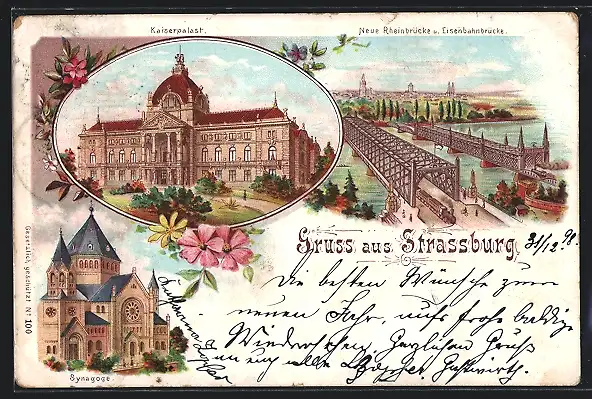 Kaiserpalast.
Neue Rheinbrücke u. Eisenbahnbrücke.
Gruss aus Strassburg.
31/12 98.
Die besten Wünsche zum
neuen Jahr, aufs frohe baldige
Wiedersehen, Herzlichen Gruß
an euch alle
Synagoge.
Gesetzlich geschützt No 100